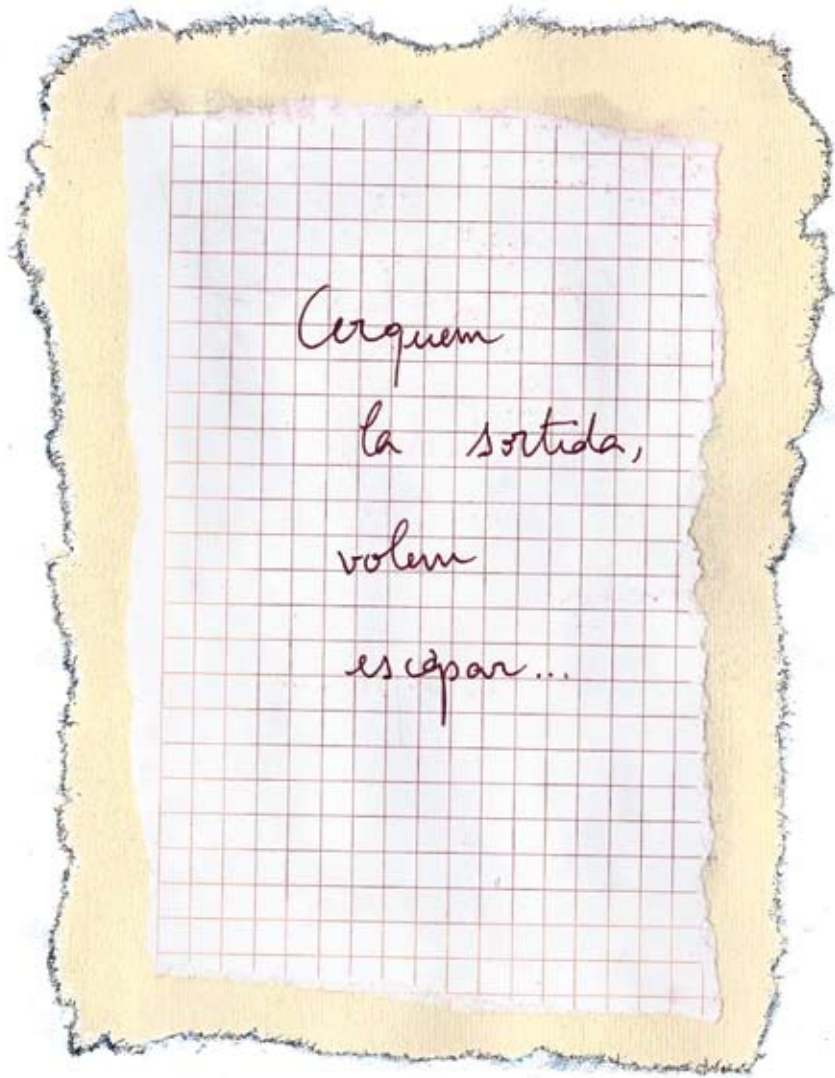 Cerquem
la sortida,
volem
escapar...